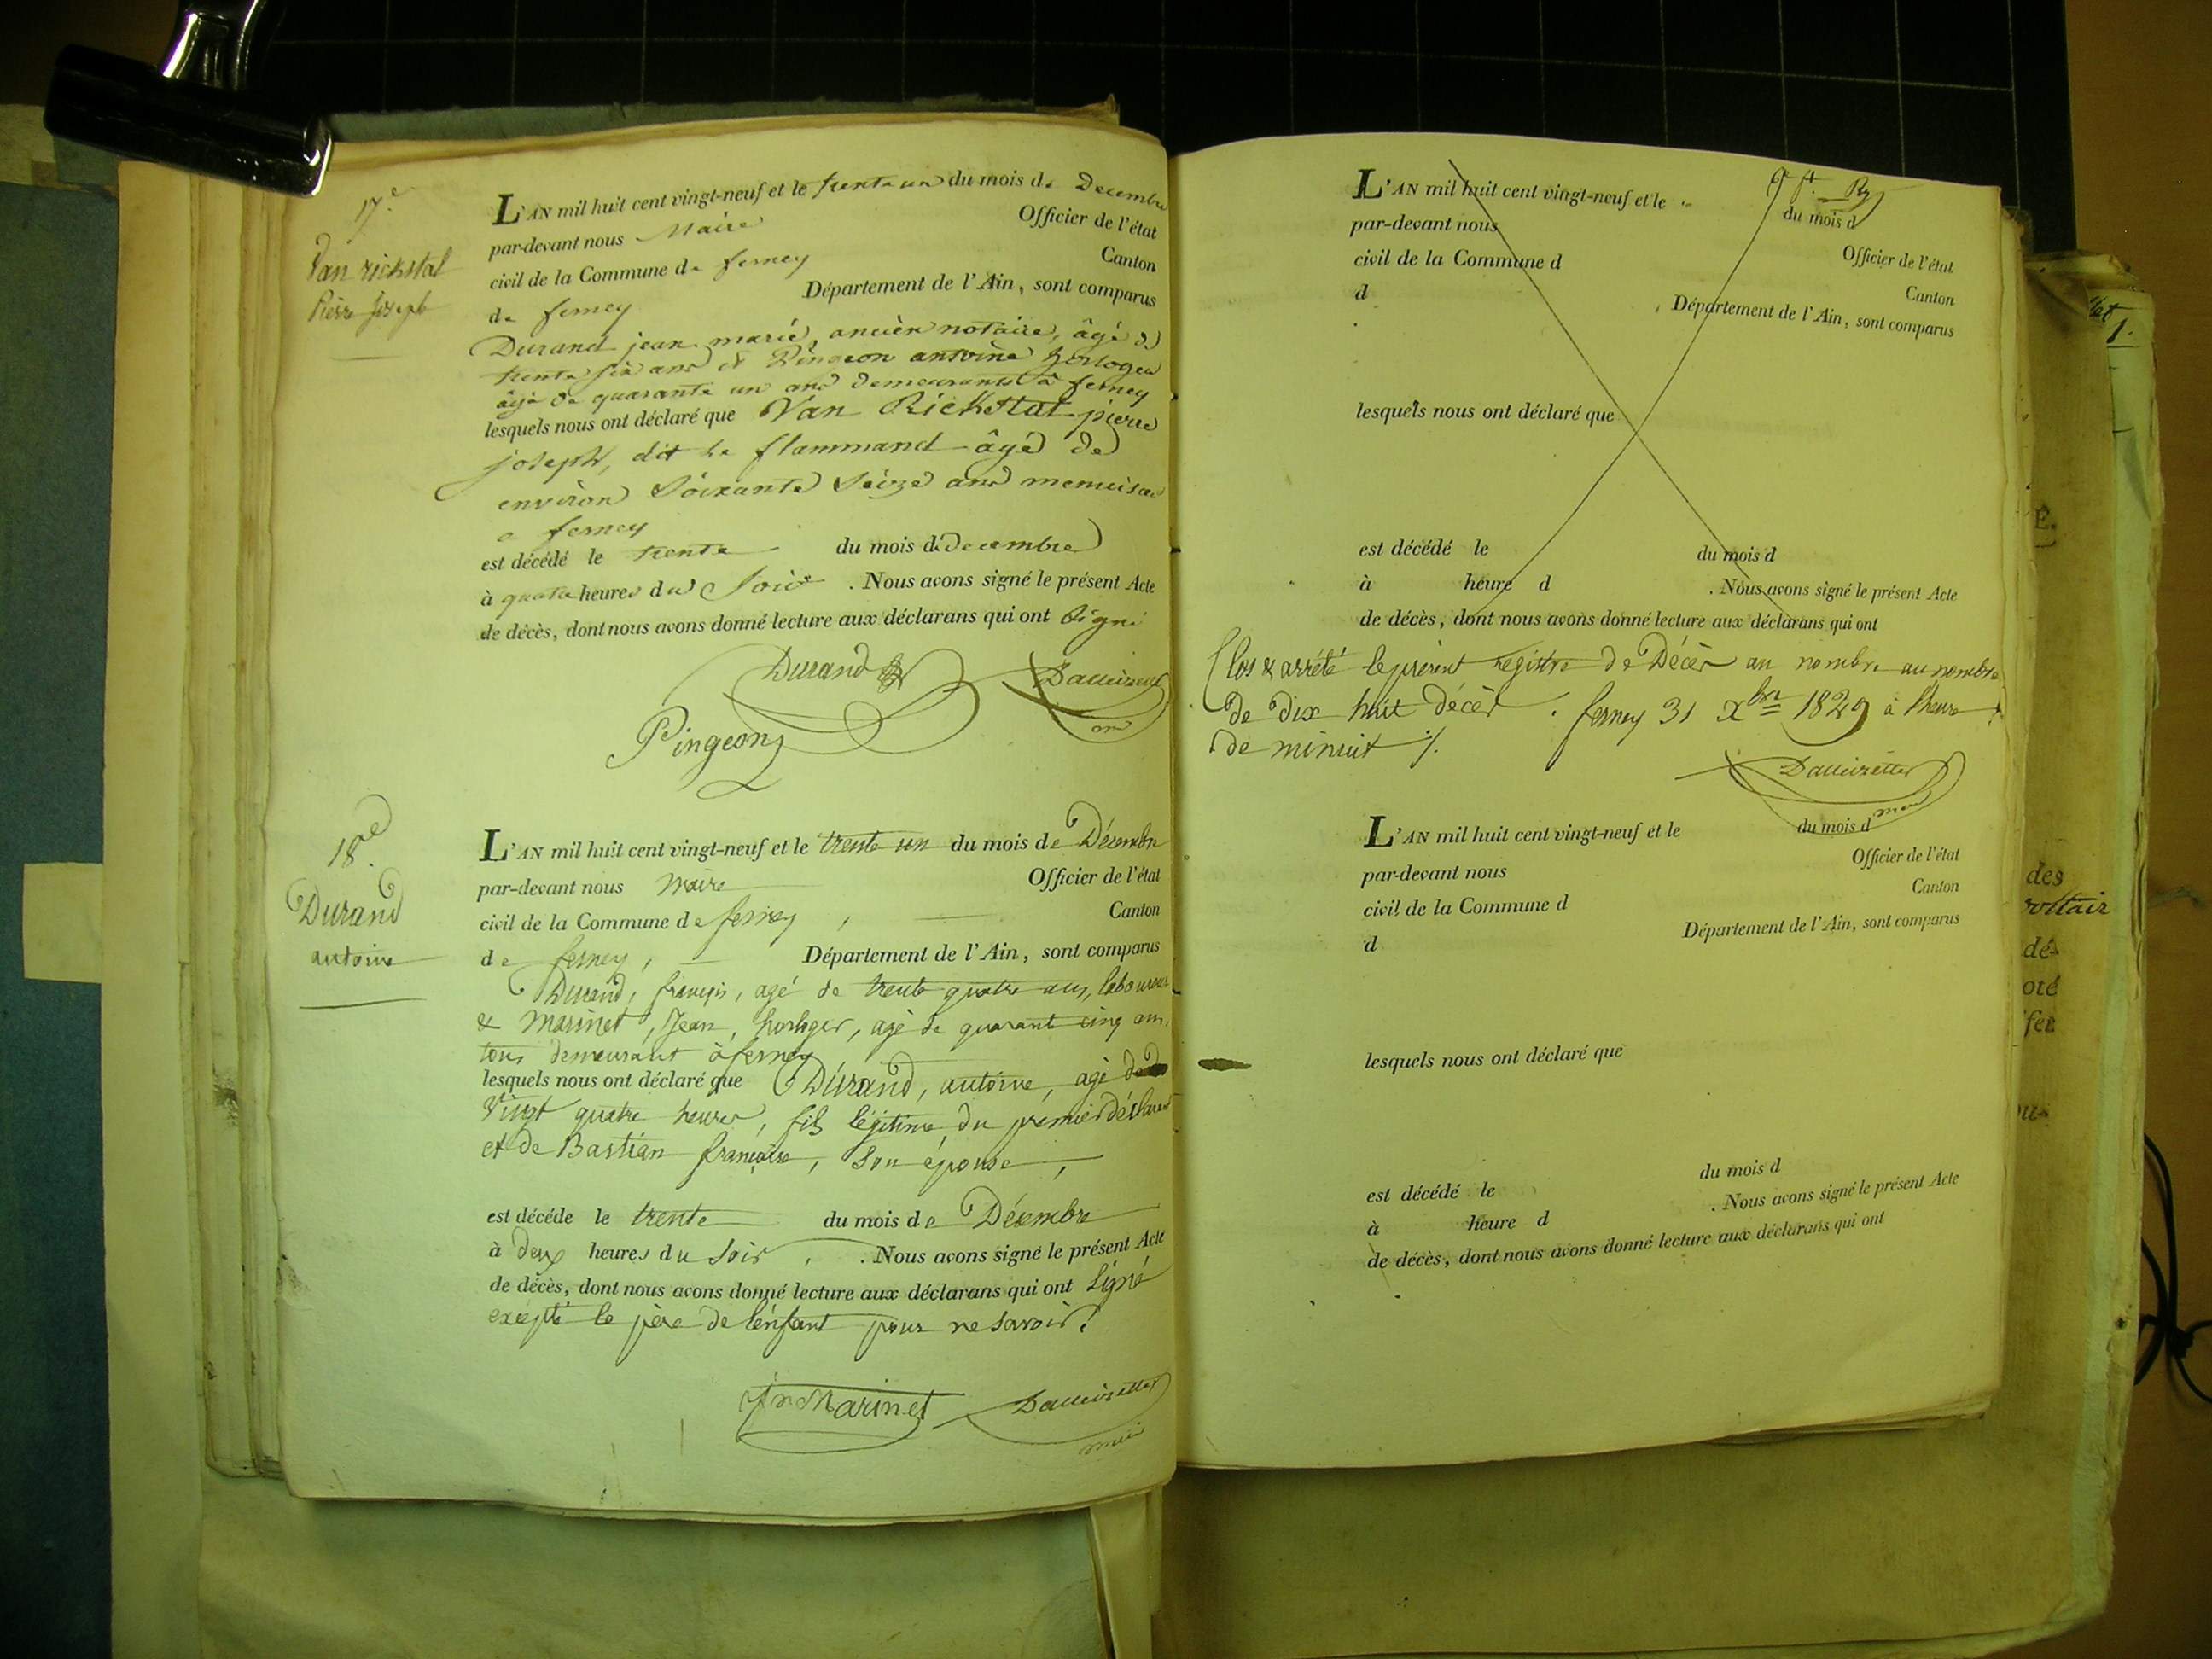 17e
Van rickstal
Pierre Joseph
L'AN mil huit cent vingt-neuf et le trente un du mois de Decembre
par-devant nous Maire Officier de l'état
civil de la Commune de ferney Canton
de ferney Département de l'Ain, sont comparus
Durand jean marie, ancien notaire, âgé de
trente six ans & Pingeon antoine horloger
âgé de quarante un ans demeurants à ferney
lesquels nous ont déclaré que Van Rickstal pierre
joseph, dit le flammand âgé de
environ Soixante Seize ans menuisier
a ferney
est décédé le trente du mois de Decembre
à quatre heures du Soir . Nous avons signé le présent Acte
de décès, dont nous avons donné lecture aux déclarans qui ont Signé
Durand
Pingeon
18e
Durand
antoine
L'AN mil huit cent vingt-neuf et le trente un du mois de Décembre
par-devant nous Maire Officier de l'état
civil de la Commune de ferney, Canton
de ferney, Département de l'Ain, sont comparus
Durand, françois, agé de trente quatre ans, laboureur
& Marinet, Jean, horloger, agé de quarant cinq ans,
tous demeurant à ferney
lesquels nous ont déclaré que Durand, antoine, agé de
Vingt quatre heures, fils légitime du premier déclarant
et de Bastian françoise, Son épouse,
est décédé le trente du mois de Décembre
à deux heures du Soir, . Nous avons signé le présent Acte
de décès, dont nous avons donné lecture aux déclarans qui ont Signé
excepté le père de l'enfant pour ne savoir.
Jn Marinet
L'AN mil huit cent vingt-neuf et le du mois d
par-devant nous Officier de l'état
civil de la Commune d Canton
d Département de l'Ain, sont comparus
lesquels nous ont déclaré que
est décédé le du mois d
à heure d . Nous avons signé le présent Acte
de décès, dont nous avons donné lecture aux déclarans qui ont
Clos & arrété le présent registre de Décès au nombre au nombre
de dix huit décès. ferney 31 Xbre 1829 à l'heure
de minuit
L'AN mil huit cent vingt-neuf et le du mois d
par-devant nous Officier de l'état
civil de la Commune d Canton
d Département de l'Ain, sont comparus
lesquels nous ont déclaré que
est décédé le du mois d
à heure d . Nous avons signé le présent Acte
de décès, dont nous avons donné lecture aux déclarans qui ont